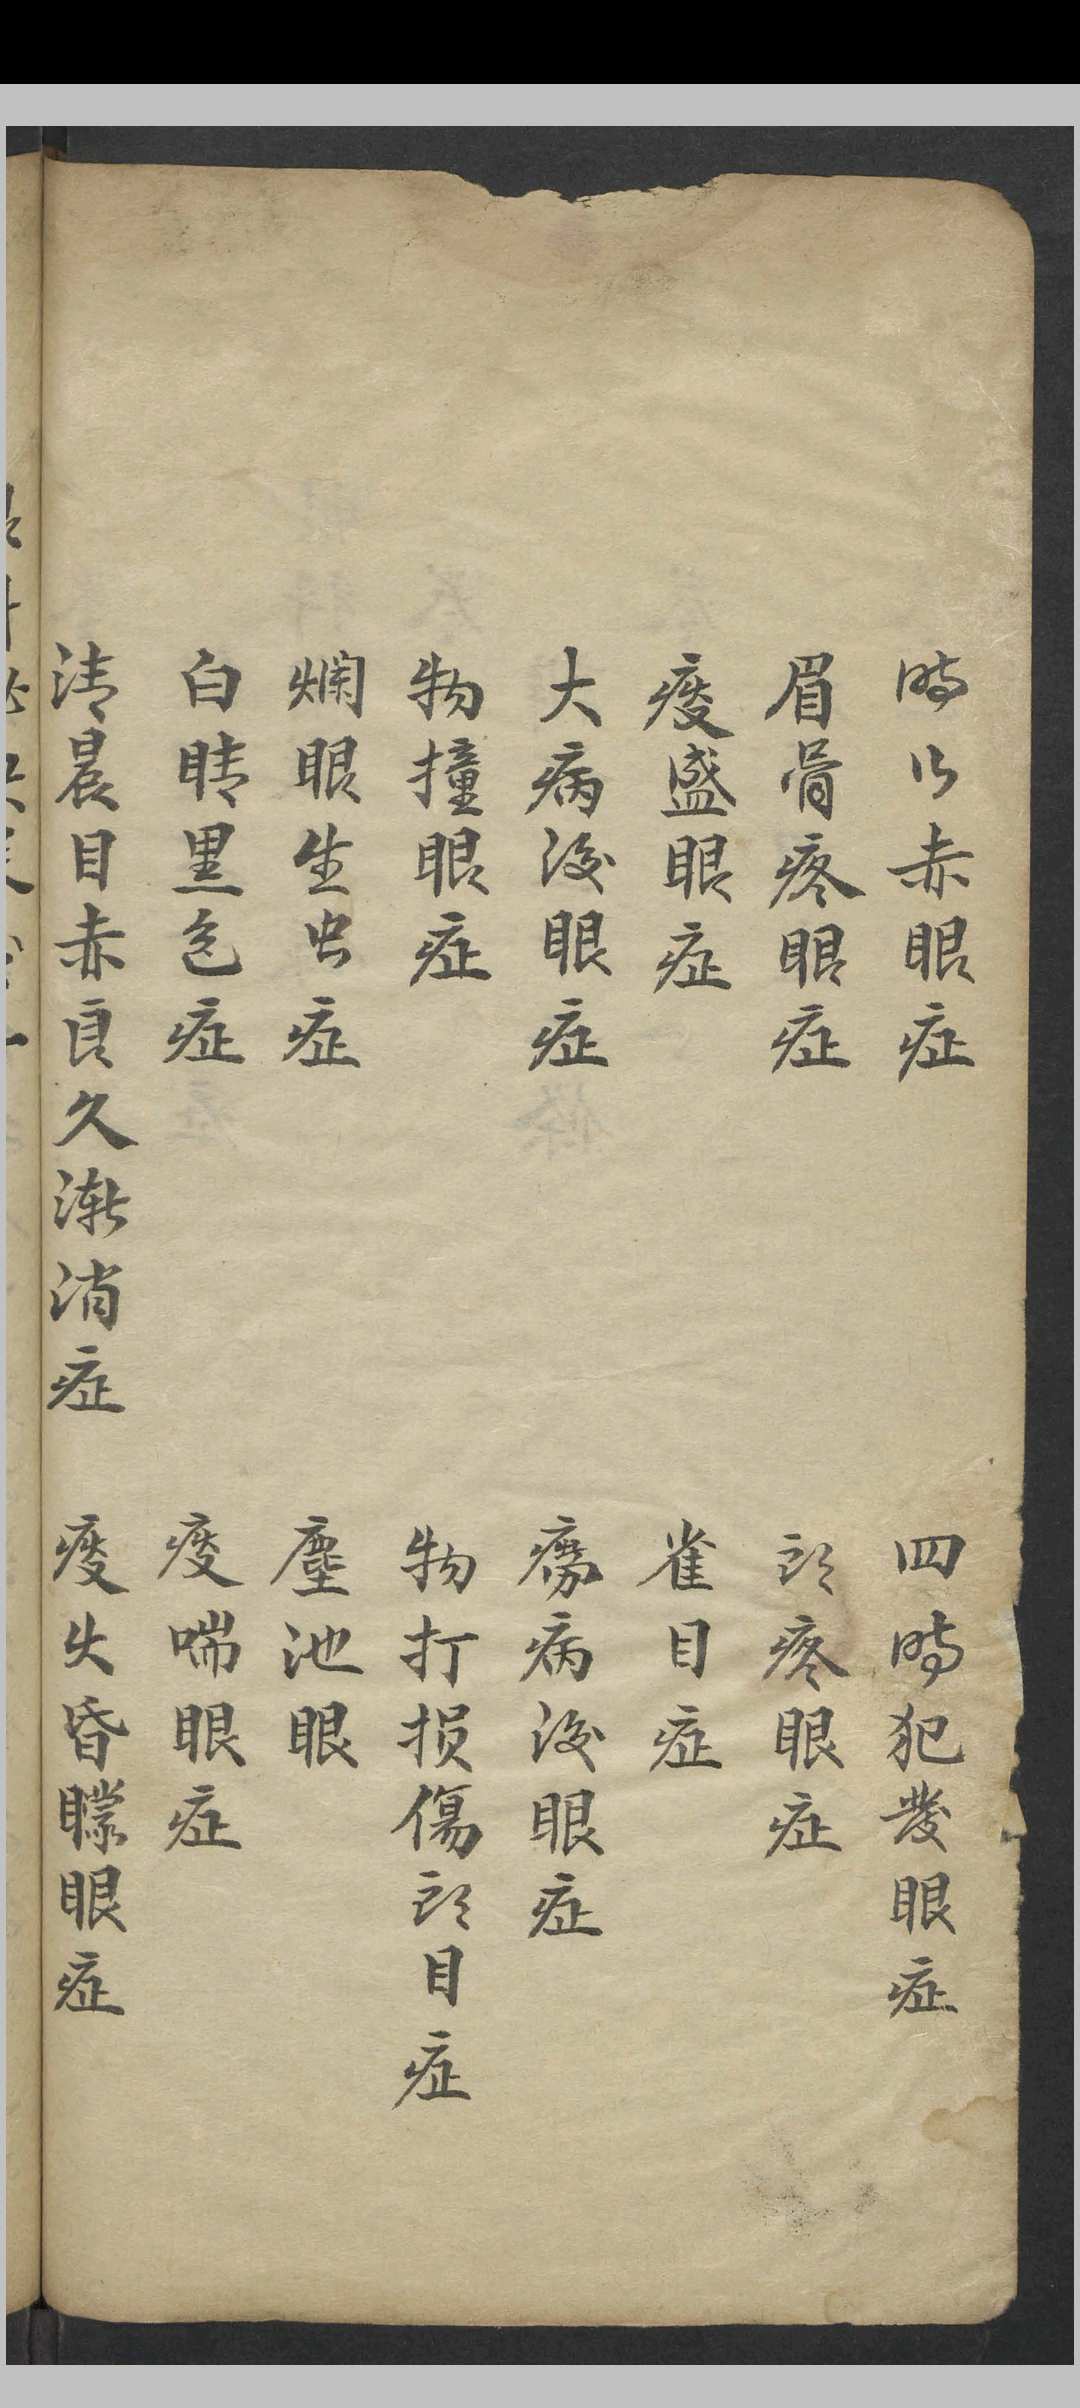 時行赤眼症
四時犯發眼症
眉骨疼眼症
头疼眼症
痰盛眼症
雀目症
大病後眼症
病後眼症
物撞眼症
物打损傷头目症
爛眼生虫症
塵池眼
白睛黑色症
痰喘眼症
清晨目赤良久漸消症
痰火昏矇眼症